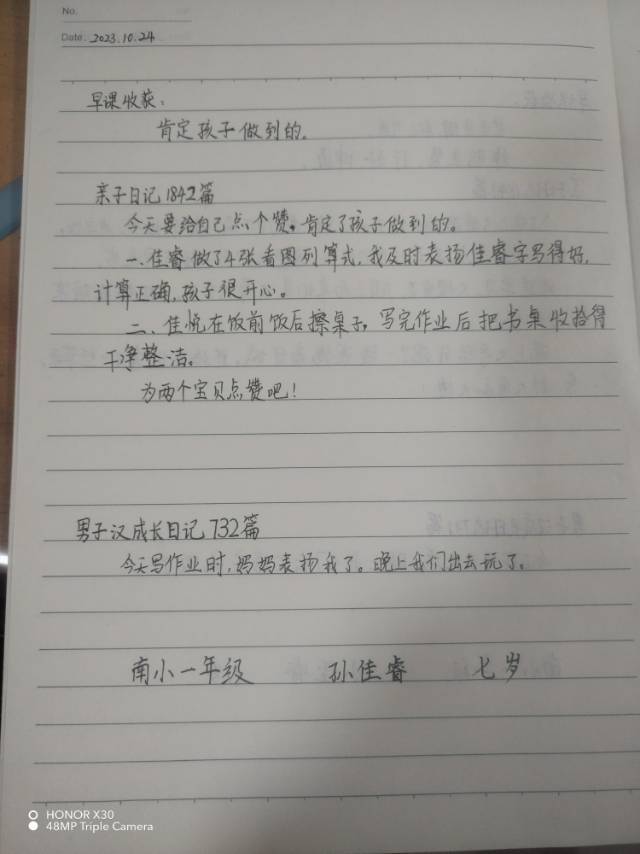 No.
Date. 2023.10.24
早课收获：
肯定孩子做到的.
亲子日记1842篇
今天要给自己点个赞。肯定了孩子做到的。
一.佳睿做了4张看图列算式,我及时表扬佳睿字写得好,
计算正确,孩子很开心。
二、佳悦在饭前饭后擦桌子,写完作业后把书桌收拾得
干净整洁。
为两个宝贝点赞吧！
男子汉成长日记732篇
今天写作业时,妈妈表扬我了。晚上我们出去玩了。
南小一年级 孙佳睿 七岁
HONOR X30
48MP Triple Camera